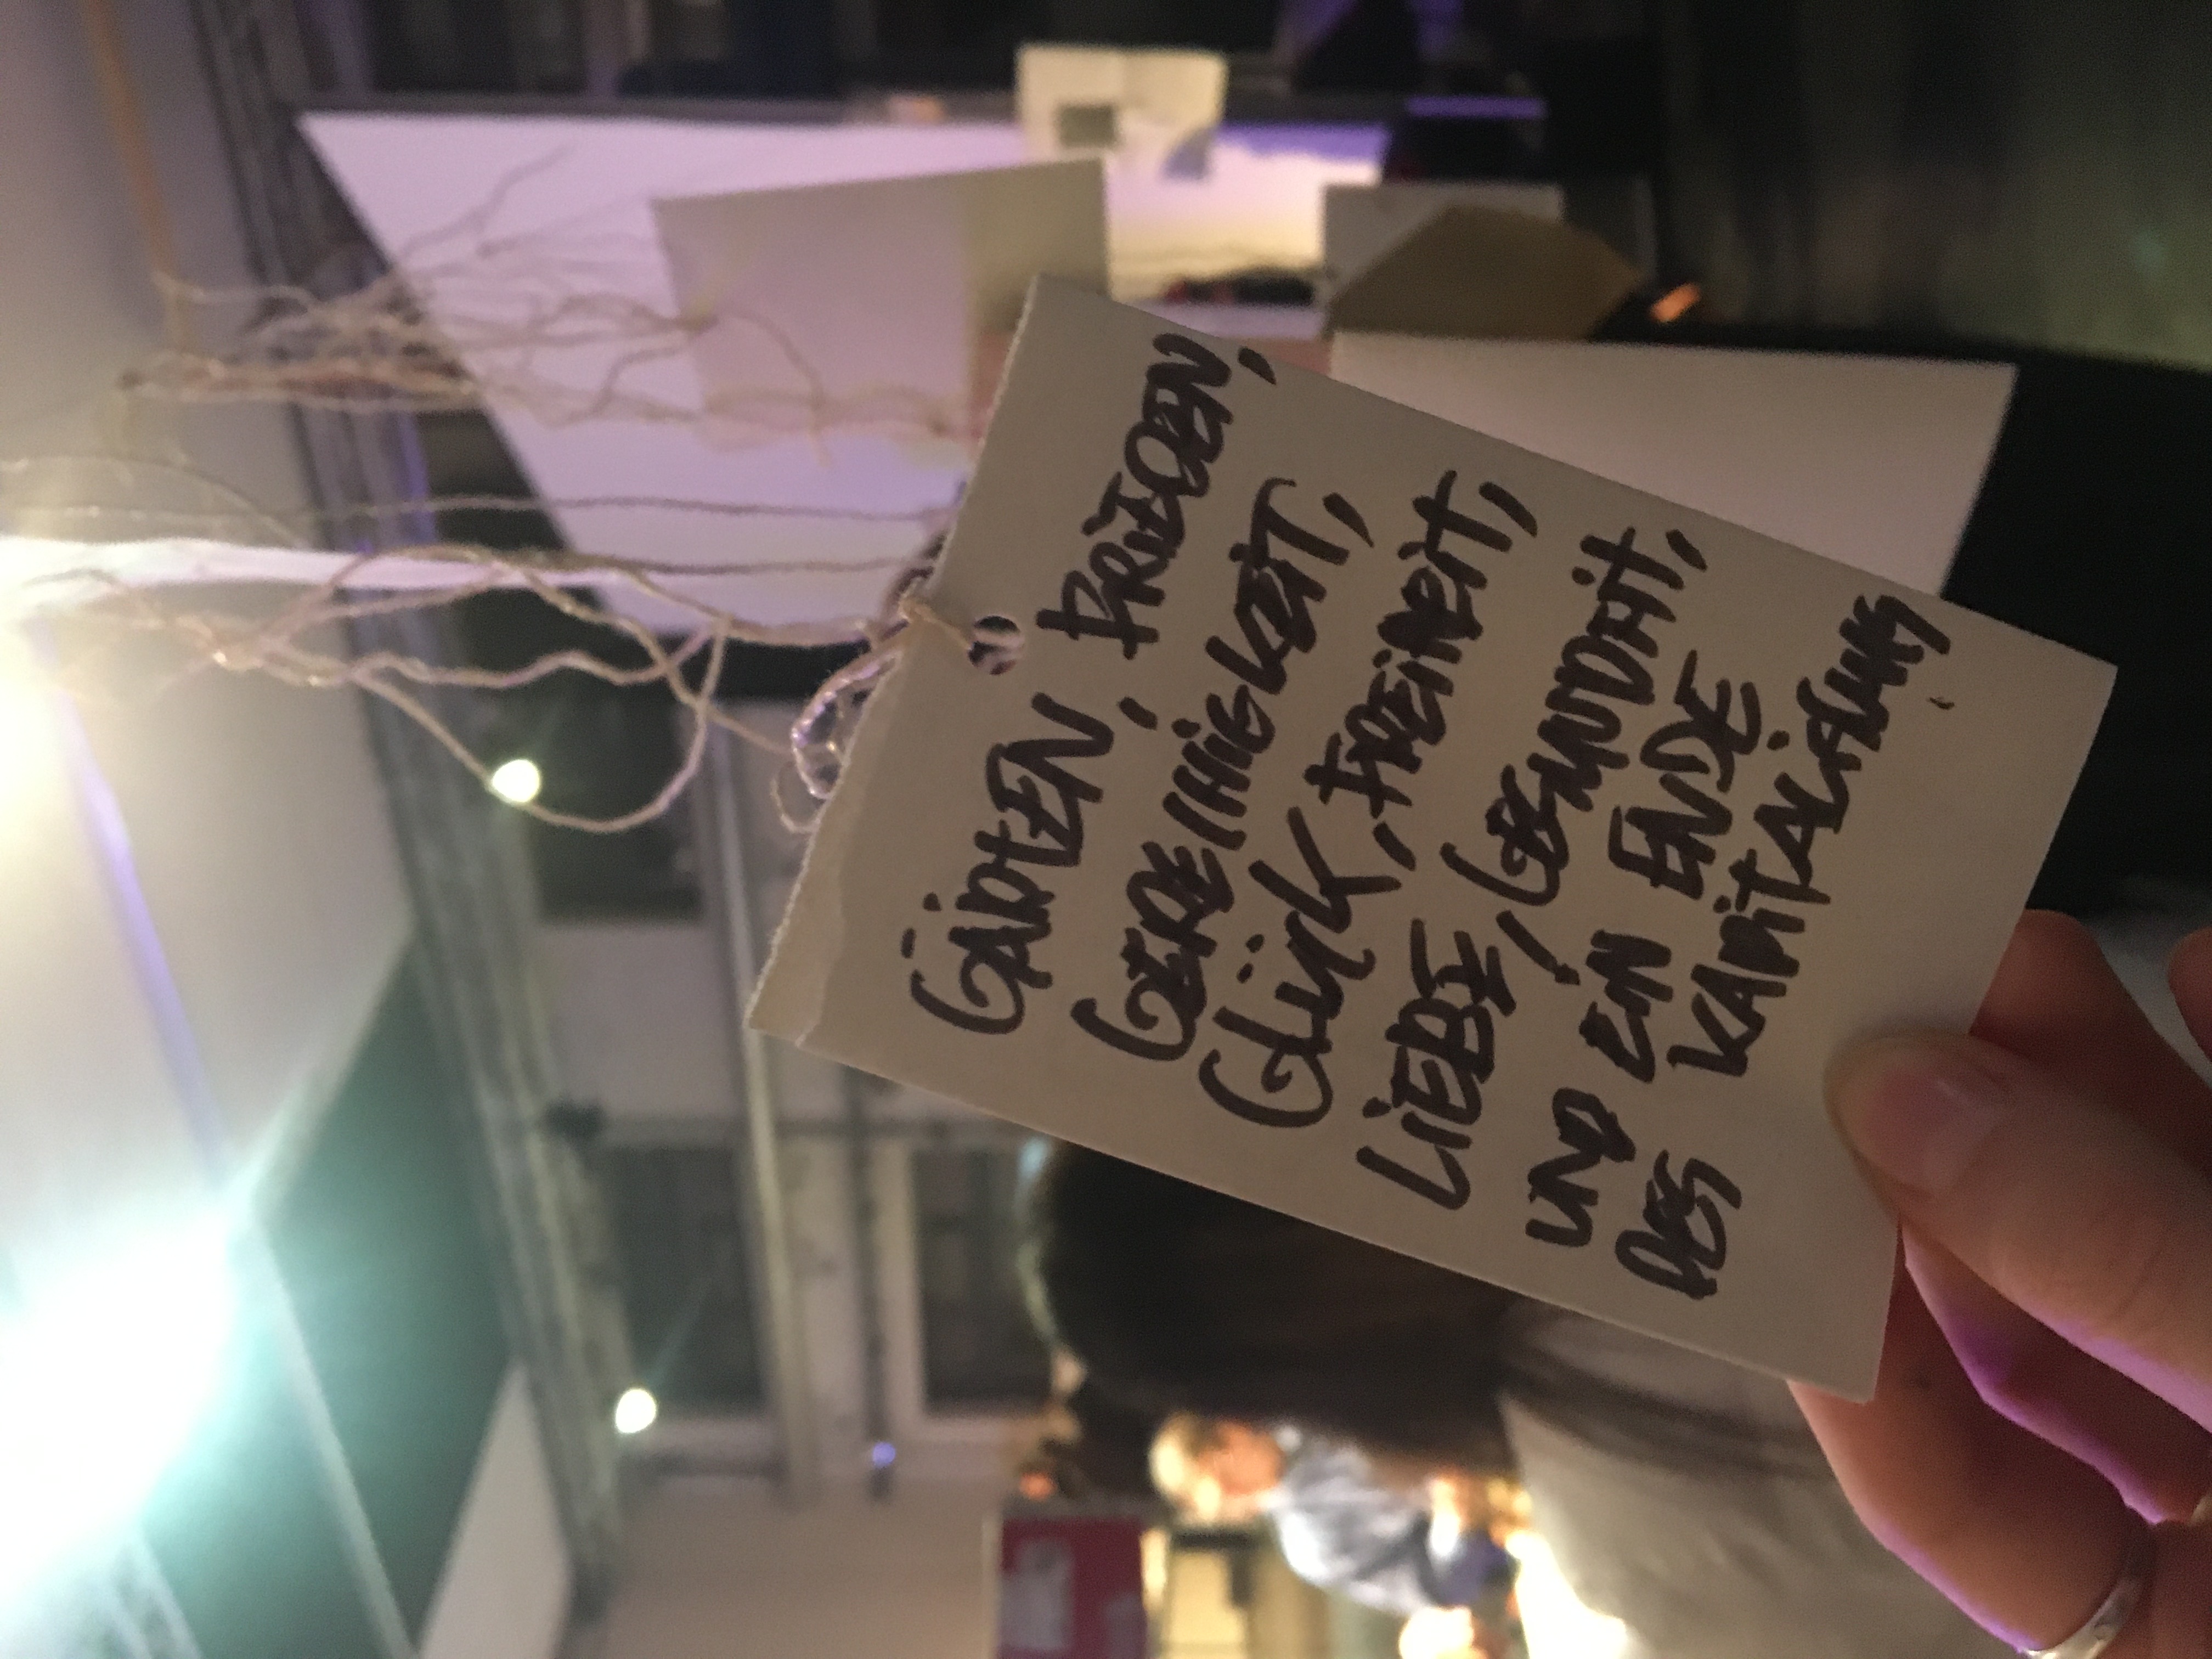 GÄRTEN, FRIEDEN,
GERECHTIGKEIT,
GLÜCK, FREIHEIT,
LIEBE, GESUNDHEIT,
UND EIN ENDE
DES KAPITALISMUS